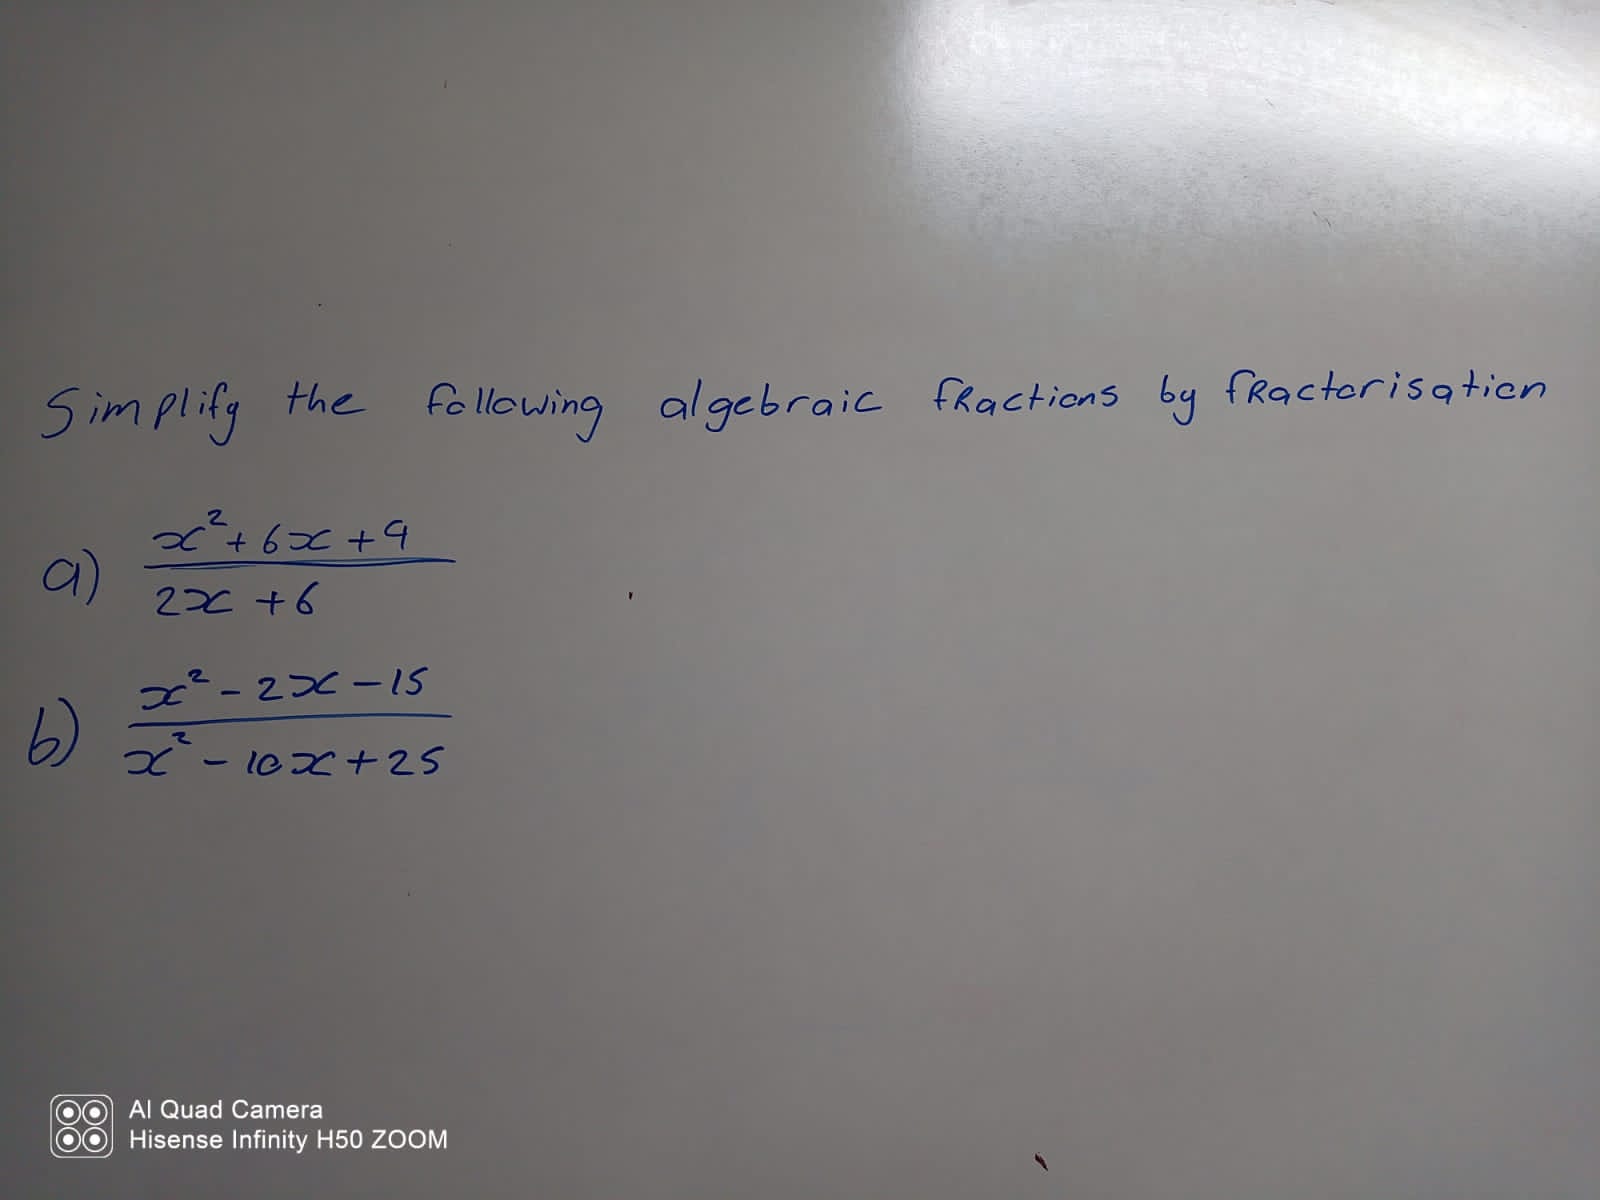 Simplify the following algebraic fractions by fractorisation
a) x² + 6x + 9
2x + 6
b) x² - 2x - 15
x² - 10x + 25
AI Quad Camera
Hisense Infinity H50 ZOOM